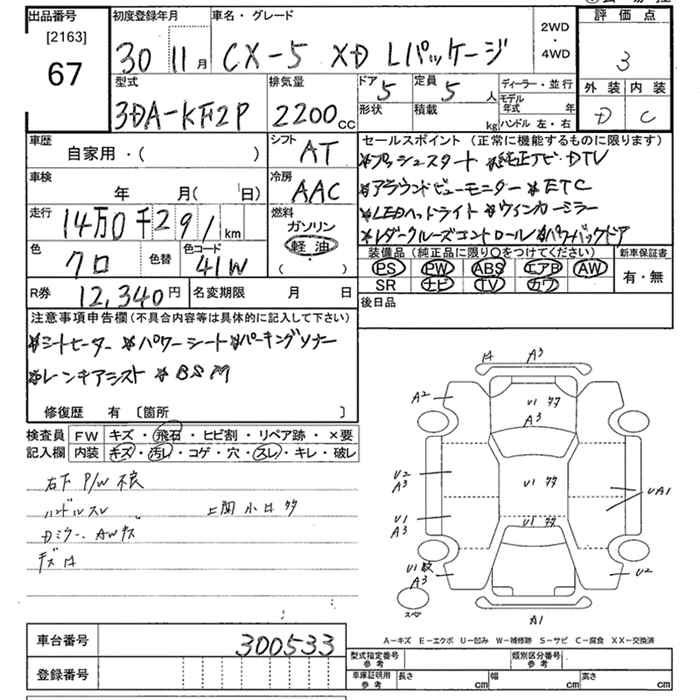 出品番号
[2163]
67
初度登録年月
30 11月
車名・グレード
CX-5 XD Lパッケージ
2WD
・
4WD
評価点
3
外装 内装
D C
型式
3DA-KF2P
排気量
2200cc
ドア 5
定員 5人
形状
積載 kg
ディーラー・並行
モデル年式 年
ハンドル 左・右
車歴
自家用・( )
シフト
AT
車検
年 月( 日)
冷房
AAC
走行
14万0千291km
燃料
ガソリン
軽油
( )
色
クロ
色替
色コード
41W
R券 12,340円
名変期限 月 日
セールスポイント(正常に機能するものに限ります)
*プッシュスタート *純正ナビ・DTV
*アラウンドビューモニター *ETC
*LEDヘッドライト *ウインカーミラー
*レダークルーズコントロール *パワーバックドア
装備品(純正品に限り○をつけてください)
PS PW ABS エアB AW
SR ナビ TV カワ
新車保証書
有・無
後日品
注意事項申告欄(不具合内容等は具体的に記入して下さい)
*シートヒーター *パワーシート *パーキングソナー
*レンキアシスト *BSM
修復歴 有 〔箇所 〕
検査員記入欄
FW キズ・飛石・ヒビ割・リペア跡・×要
内装 キズ・汚レ・コゲ・穴・スレ・キレ・破レ
右下 P/W 不良
ハンドルスレ
Dミラー AWキズ
A3
A2
U1
A3
U1
U1
U2
A3
U1
A3
UA1
U1
A3
U2
スペア
A1
A-キズ E-エクボ U-凹み W-補修跡 S-サビ C-腐食 XX-交換済
車台番号 300533
登録番号
型式指定番号 参考
類別区分番号 参考
車庫証明用 参考
長さ cm 幅 cm 高さ cm